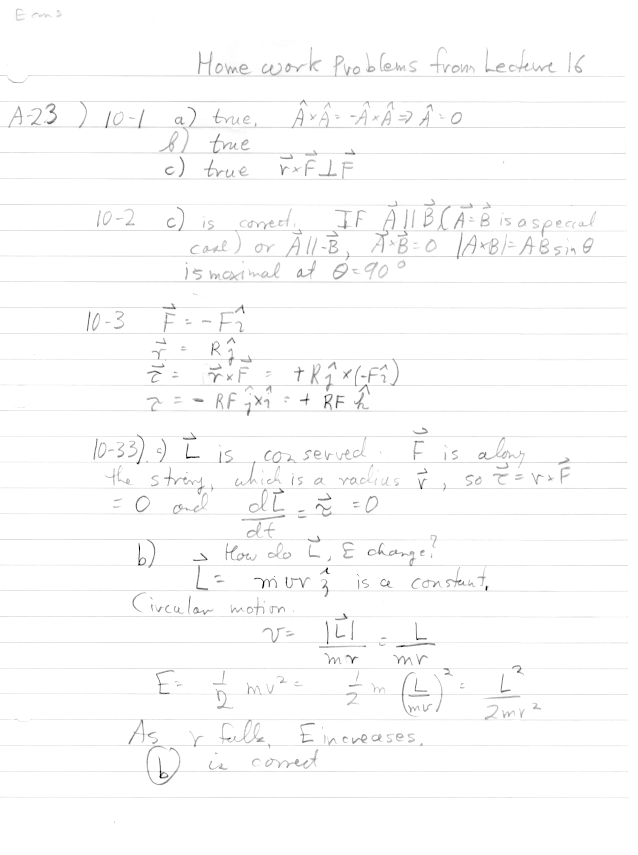 Home work Problems from Lecture 16
A-23) 10-1 a) true, Â×Â = -Â×Â ⇒ Â = 0
b) true
c) true r⃗×F⃗ ⊥ F⃗
10-2 c) is correct. IF A⃗ || B⃗ (A⃗=B⃗ is a special
case) or A⃗ // -B⃗, A⃗×B⃗ = 0 |A×B| = AB sin θ
is maximal at θ = 90°
10-3 F⃗ = - F î
r⃗ = R ĵ
τ⃗ = r⃗×F⃗ = +R ĵ × (-F î)
τ = - RF ĵ×î = + RF k̂
10-33) a) L⃗ is conserved. F⃗ is along
the string, which is a radius r⃗, so τ⃗ = r×F⃗
= 0 and dL⃗/dt = τ⃗ = 0
b) How do L⃗, E change?
L⃗ = mvr ẑ is a constant.
Circular motion.
v = |L⃗|/mr = L/mr
E = 1/2 mv² = 1/2 m (L/mr)² = L²/2mr²
As r falls, E increases.
b is correct